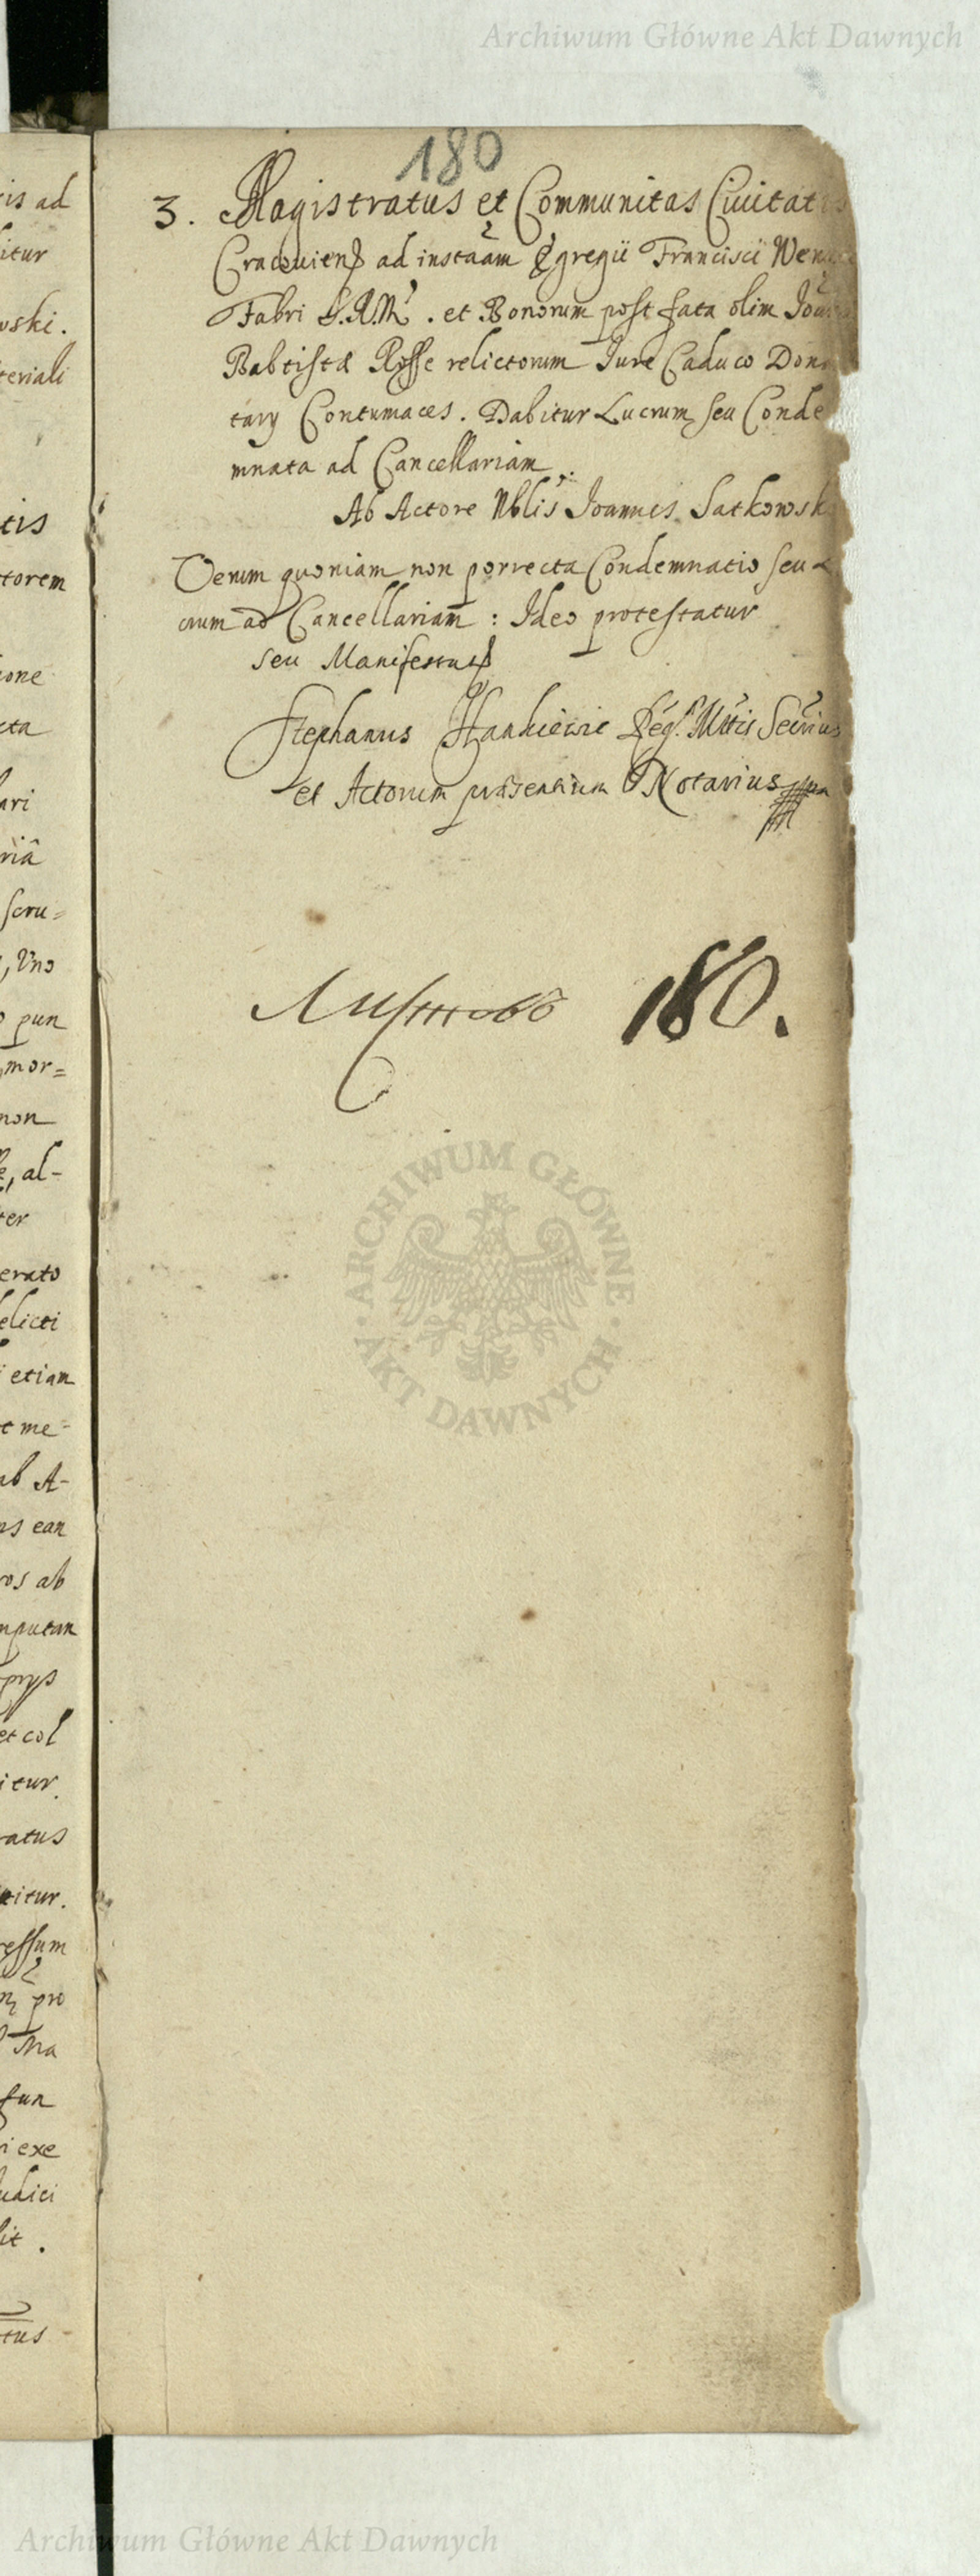 Archiwum Główne Akt Dawnych
180
3. Magistratus et Communitas Ciuitatis
Cracouiens ad instaam Egregii Francisci
Fabri S.R.M. et Bonorum post fata olim
Baptistæ Rosse relictorum Jure Caduco Dona
tarÿ Contumaces. Dabitur Lucrum seu Conde
mnata ad Cancellariam.
Ab Actore Nblis Joannes Satkowski
Verum quoniam non porrecta Condemnatio seu
crum ad Cancellariam : Ideo protestatur
seu Manifestus
Stephanus Hankiewic Reg. Mttis Secrius
et Actorum præsentium Notarius mp
Листовъ 180.
ARCHIWUM GŁÓWNE
AKT DAWNYCH
is ad
itur
wski.
teriali
tis
ctorem
ione
cta
ari
riâ
scru=
, Vno
pun
mor=
non
, al-
ter
erato
elicti
etiam
t me-
ab A-
ns ean
ros ab
mputan
prÿs
et col
itur.
ratus
itur.
ressum
pro
Ma
fun
i exe
udici
it.
tus
Archiwum Główne Akt Dawnych